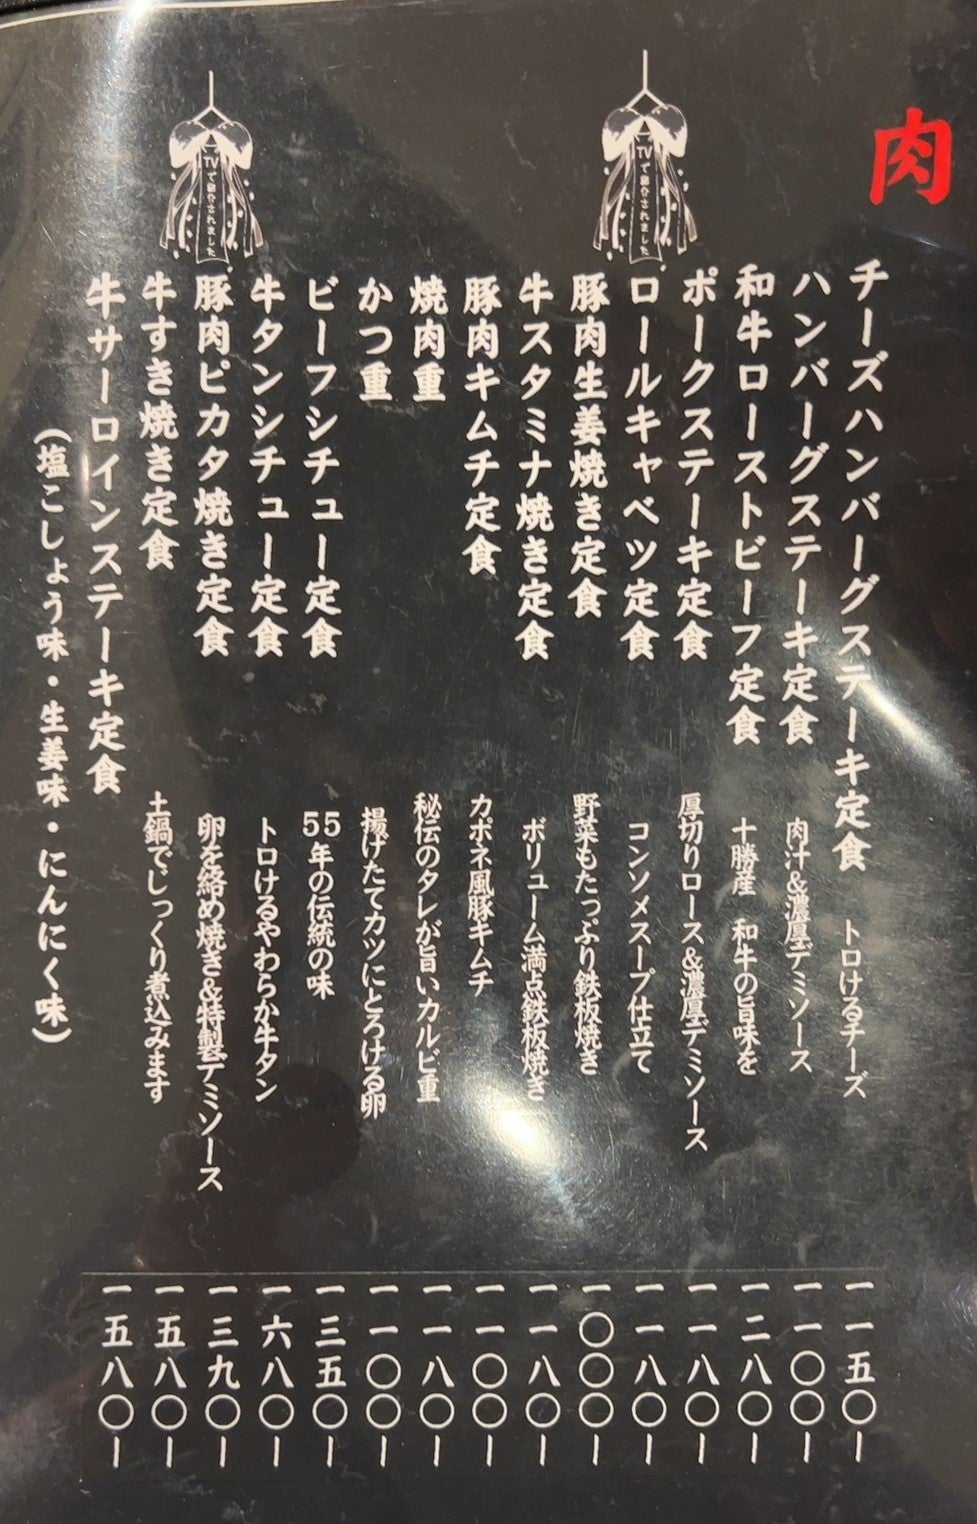 肉
チーズハンバーグステーキ定食 トロけるチーズ 一一五〇ー
ハンバーグステーキ定食 肉汁&濃厚デミソース 一一〇〇ー
和牛ローストビーフ定食 十勝産 和牛の旨味を 一二八〇ー
ポークステーキ定食 厚切りロース&濃厚デミソース 一一八〇ー
TVで紹介されました
ロールキャベツ定食 コンソメスープ仕立て 一一八〇ー
豚肉生姜焼き定食 野菜もたっぷり鉄板焼き 一〇〇〇ー
牛スタミナ焼き定食 ボリューム満点鉄板焼き 一一八〇ー
豚肉キムチ定食 カポネ風豚キムチ 一一〇〇ー
焼肉重 秘伝のタレが旨いカルビ重 一一八〇ー
かつ重 揚げたてカツにとろける卵 一一〇〇ー
ビーフシチュー定食 55年の伝統の味 一三五〇ー
牛タンシチュー定食 トロけるやわらか牛タン 一六八〇ー
TVで紹介されました
豚肉ピカタ焼き定食 卵を絡め焼き&特製デミソース 一三九〇ー
牛すき焼き定食 土鍋でじっくり煮込みます 一五八〇ー
牛サーロインステーキ定食 一五八〇ー
(塩こしょう味・生姜味・にんにく味)